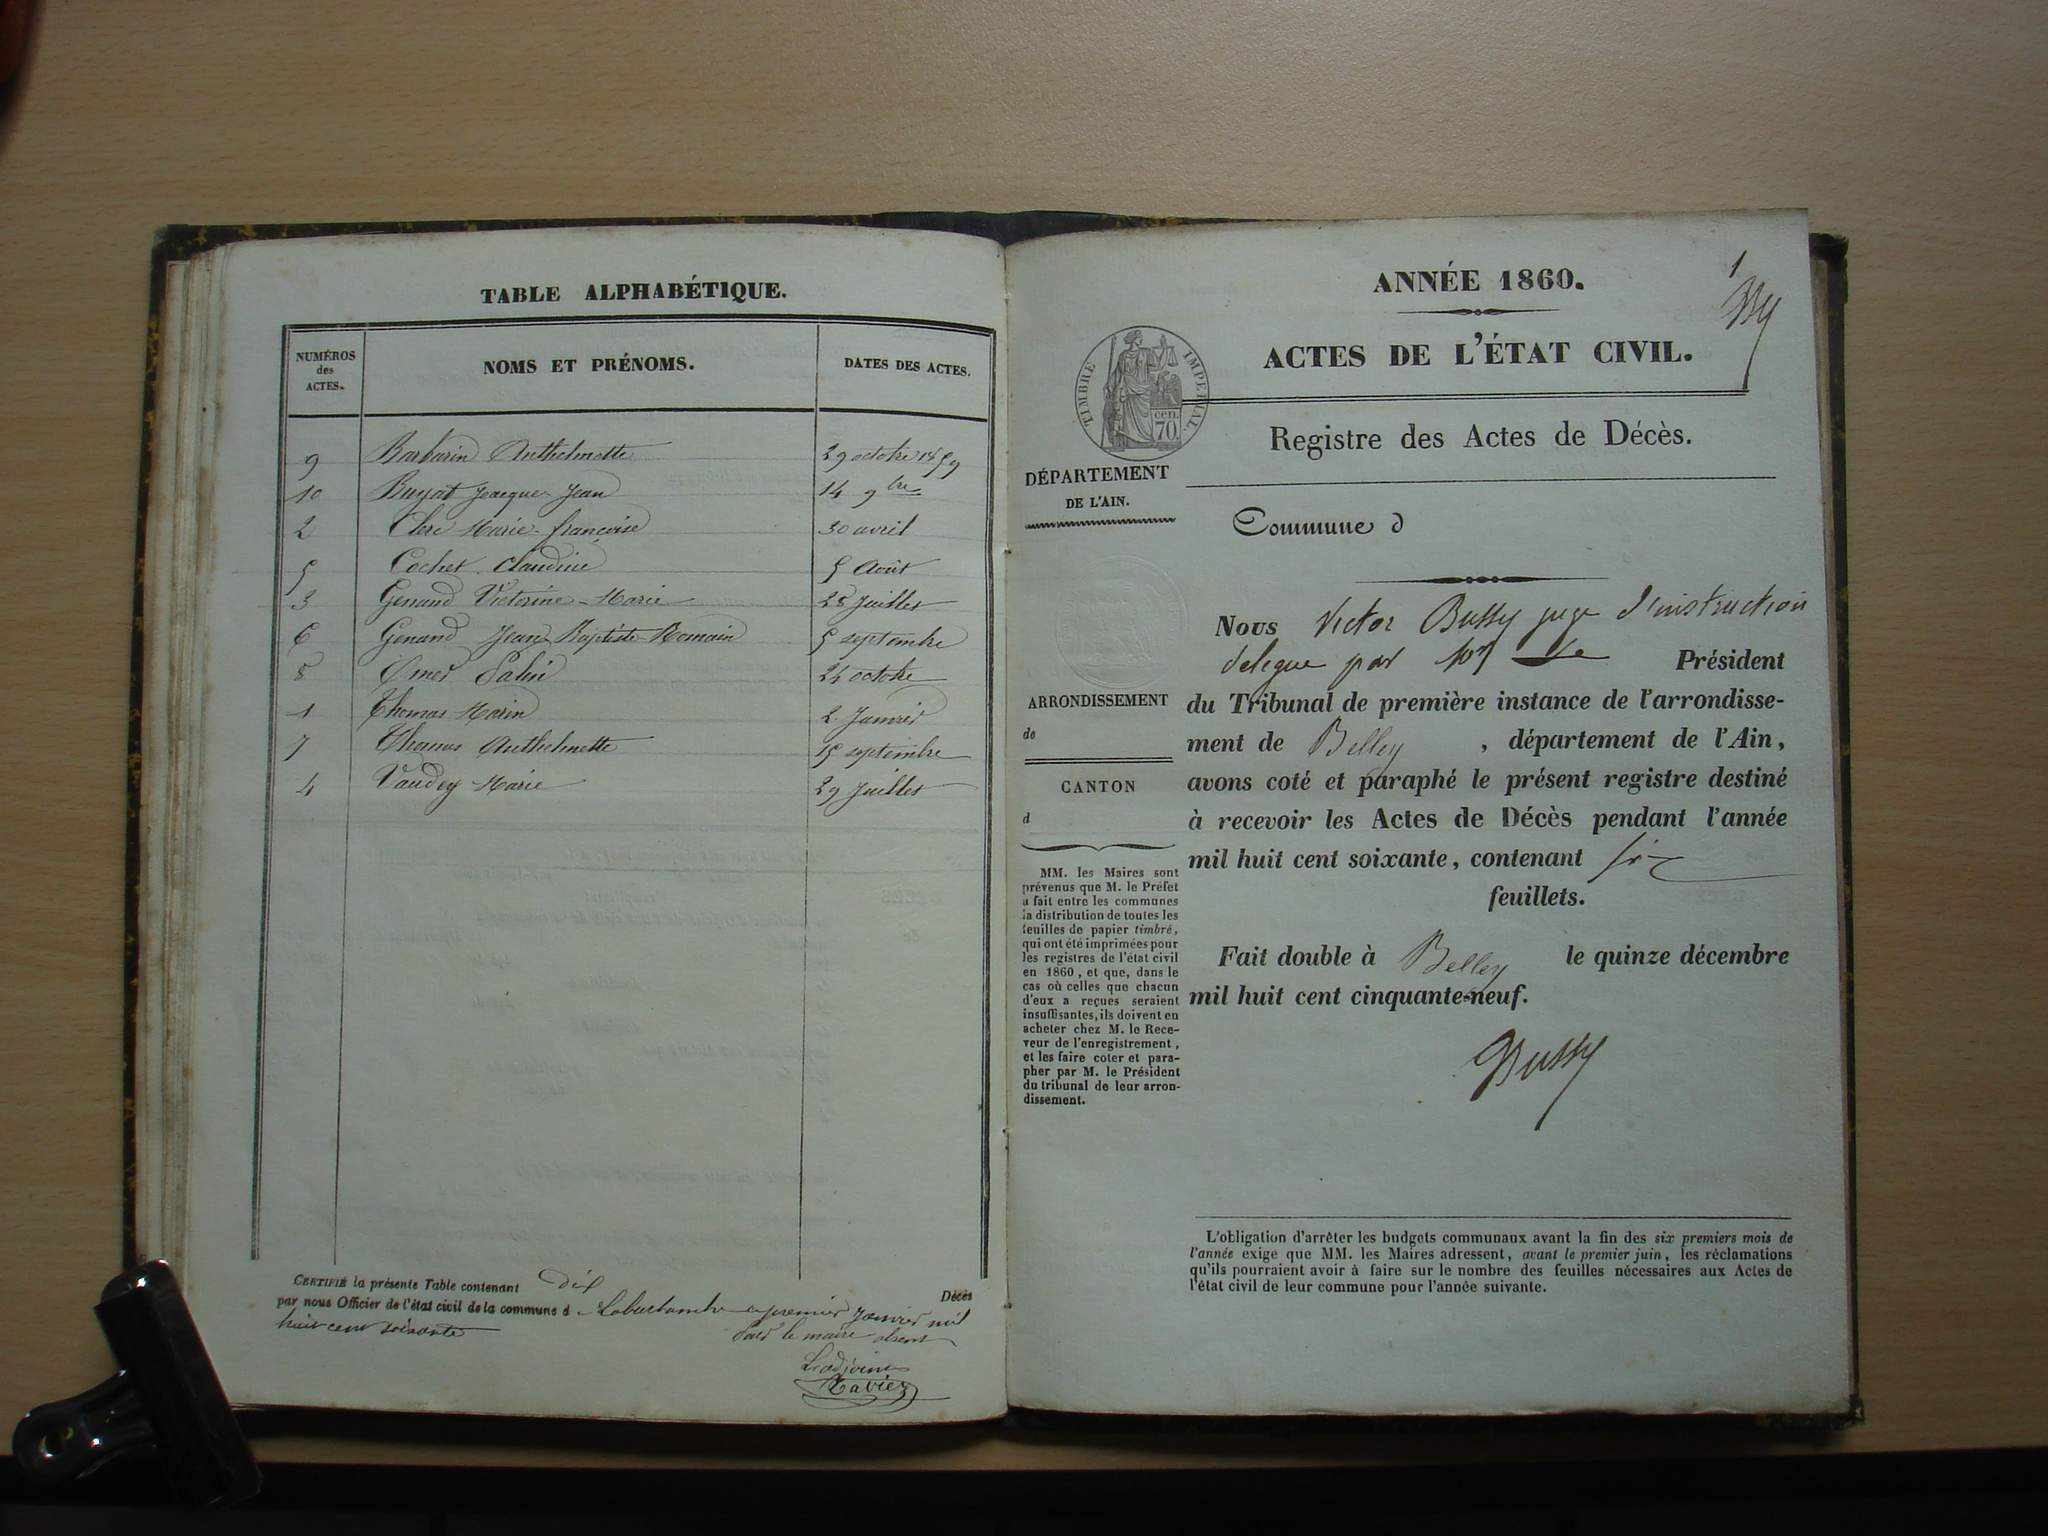 TABLE ALPHABÉTIQUE.
NUMÉROS des ACTES. NOMS ET PRÉNOMS. DATES DES ACTES.
9 Barbarin Anthelmette 29 octobre 1859
10 Buyat Jacque-Jean 14 9bre
2 Clerc Marie-françoise 30 avril
5 Cochet Claudine 5 Août
3 Genand Victorine-Marie 28 Juillet
6 Genand Jean Baptiste Romain 5 septembre
8 Omer 24 octobre
1 Thomas Marin 2 Janvier
7 Thomas Anthelmette 15 septembre
4 Vaudey Marie 29 Juillet
CERTIFIÉ la présente Table contenant dix Décès
par nous Officier de l'état civil de la commune d ce premier Janvier mil
huit cent soixante
Pour le maire absent
L'adjoint
1
ANNÉE 1860.
ACTES DE L'ÉTAT CIVIL.
TIMBRE IMPERIAL.
cen. 70.
Registre des Actes de Décès.
DÉPARTEMENT
DE L'AIN.
Commune d
ARRONDISSEMENT
de
CANTON
d
MM. les Maires sont
prévenus que M. le Préfet
a fait entre les communes
la distribution de toutes les
feuilles de papier timbré,
qui ont été imprimées pour
les registres de l'état civil
en 1860, et que, dans le
cas où celles que chacun
d'eux a reçues seraient
insuffisantes, ils doivent en
acheter chez M. le Rece-
veur de l'enregistrement,
et les faire coter et para-
pher par M. le Président
du tribunal de leur arron-
dissement.
Nous Victor Bussy juge d'instruction
delegue par Mr Le Président
du Tribunal de première instance de l'arrondisse-
ment de Belley, département de l'Ain,
avons coté et paraphé le présent registre destiné
à recevoir les Actes de Décès pendant l'année
mil huit cent soixante, contenant six
feuillets.
Fait double à Belley le quinze décembre
mil huit cent cinquante-neuf.
Bussy
L'obligation d'arrêter les budgets communaux avant la fin des six premiers mois de
l'année exige que MM. les Maires adressent, avant le premier juin, les réclamations
qu'ils pourraient avoir à faire sur le nombre des feuilles nécessaires aux Actes de
l'état civil de leur commune pour l'année suivante.